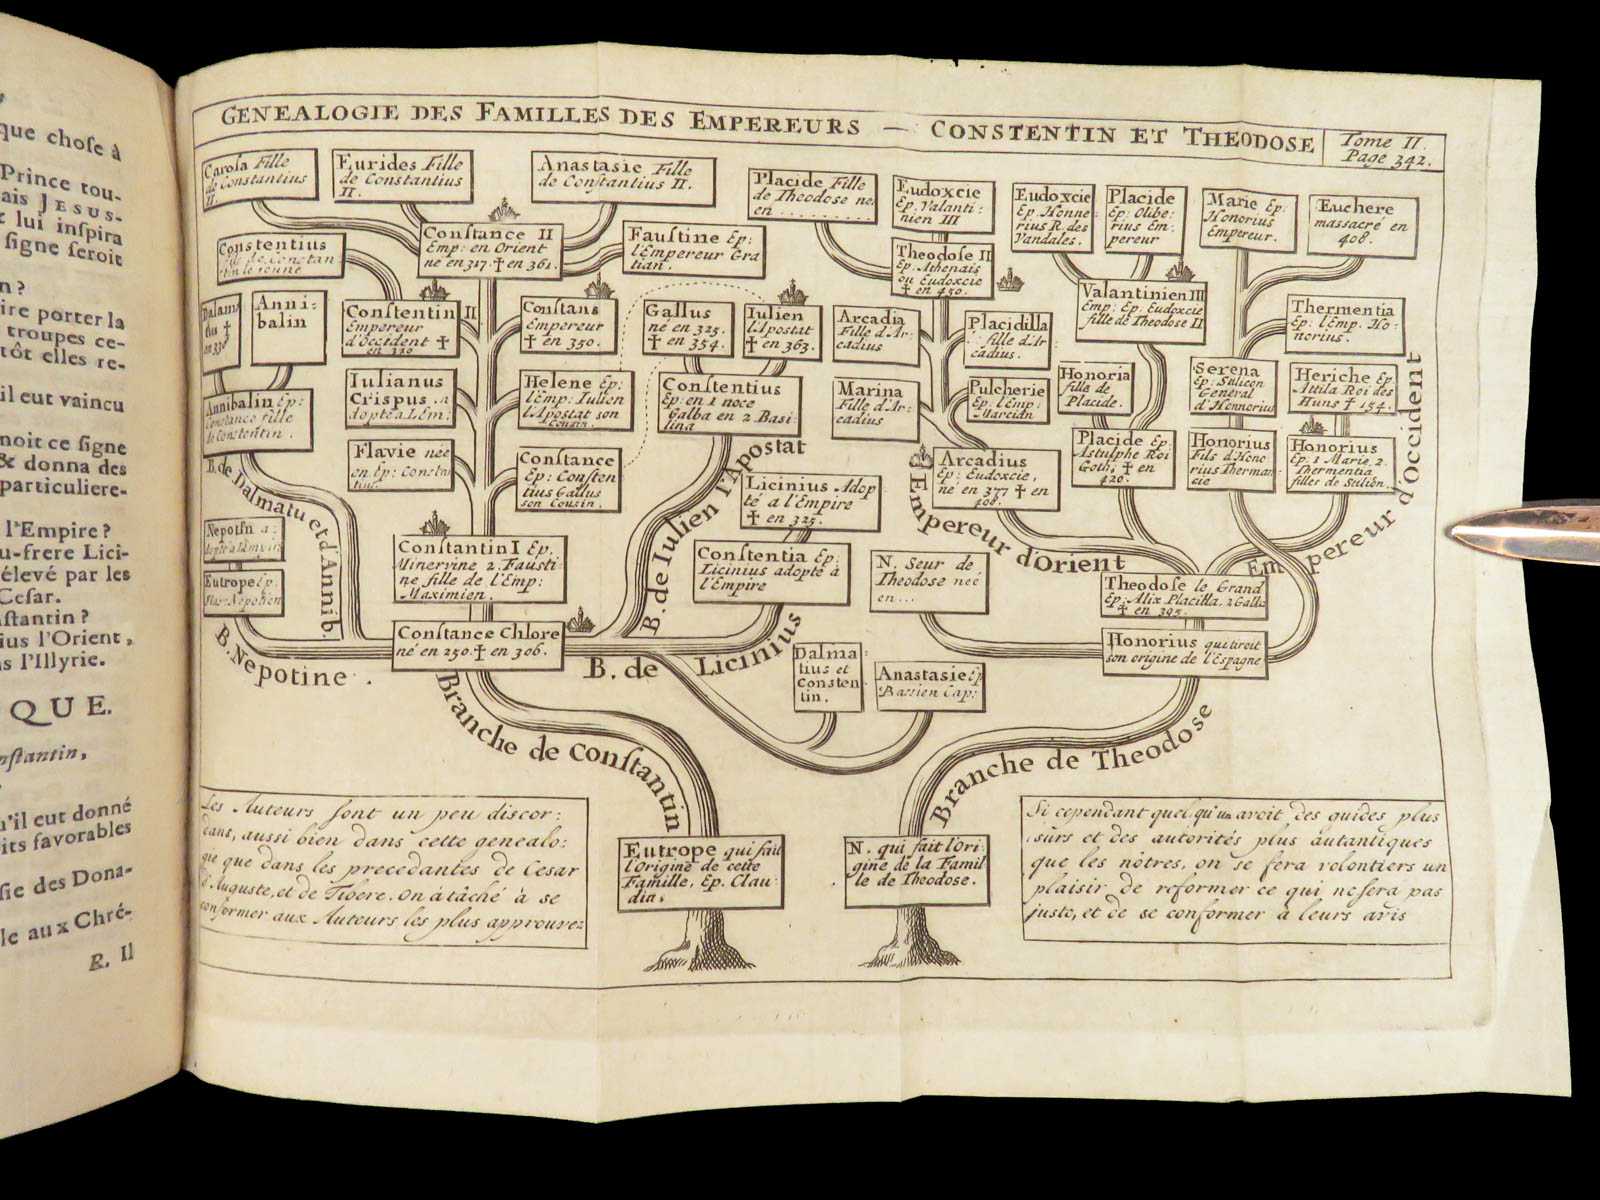 que choſe à
Prince tou-
ais JESUS-
lui inſpira
ſigne ſeroit
n?
ire porter la
troupes ce-
tôt elles re-
il eut vaincu
noit ce ſigne
& donna des
particuliere-
l'Empire?
u-frere Lici-
élevé par les
Ceſar.
nſtantin?
ius l'Orient,
s l'Illyrie.
QUE.
nſtantin,
u'il eut donné
its favorables
ſie des Dona-
le aux Chré-
R. II
GENEALOGIE DES FAMILLES DES EMPEREURS — CONSTENTIN ET THEODOSE
Tome II.
Page 342.
Caroſa Fille
de Constantius
II.
Eurides Fille
de Constantius
II.
Anastasie Fille
de Constantius II.
Placide Fille
de Theodose née
en ..........
Eudoxcie
Ep. Valanti:
nien III
Eudoxcie
Ep. Honne:
rius R. des
Vandales.
Placide
Ep: Olibe:
rius Em:
pereur
Marie Ep:
Honorius
Empereur.
Euchere
massacré en
408.
Constentius
fils de Constan
tin le jeune
Constance II
Emp: en Orient
né en 317. ✝ en 361.
Faustine Ep:
l'Empereur Gra
tian.
Theodose II
Ep. Athenais
ou Eudoxcie
✝ en 450.
Valantinien III
Emp: Ep: Eudoxcie
fille de Theodose II
Dalama
tius ✝
en 338
Anni:
balin
Conſtentin II
Empereur
d'Occident ✝
en 340
Conſtans
Empereur
✝ en 350.
Gallus
né en 325.
✝ en 354.
Iulien
l'Apostat
✝ en 363.
Arcadia
Fille d'Ar-
cadius
Placidilla
fille d'Ar
cadius.
Thermentia
Ep: l'Emp. Ho-
norius.
Annibalin Ep:
Constance fille
de Constentin.
Iulianus
Crispus. a
dopté à l'Em:
Helene Ep:
l'Emp: Iulien
l'Apostat son
Cousin.
Conſtentius
Ep: en 1 noce
Galba en 2 Basi-
lina
Marina
Fille d'Ar-
cadius
Pulcherie
Ep: l'Emp:
Marcian
Honoria
fille de
Placide.
Serena
Ep: Stilicon
General
d'Honnorius
Heriche Ep:
Attila Roi des
Huns ✝ 154.
Flavie née
en Ep: Constan
tius.
Conſtance
Ep: Conſten-
tius Gallus
son Cousin.
Licinius Adop
té a l'Empire
✝ en 325.
Arcadius
Ep: Eudoxcie,
né en 377 ✝ en
408.
Placide Ep:
Astulphe Roi
Goth; ✝ en
420.
Honorius
Fils d'Hono
rius Therman:
cie
Honorius
Ep: 1 Marie, 2.
Thermentia
filles de Stilicon.
B. de Dalmatu et d'Annib.
B. de Iulien l'Apostat
Empereur d'Orient
Empereur d'Occident
Nepotſn a:
dopté à l'Empire
Eutrope Ep.
Flav. Nepotien
Conſtantin I Ep.
Minervine 2. Fausti:
ne fille de l'Emp:
Maximien.
Conſtentia Ep:
Licinius adopté à
l'Empire
N. Seur de
Theodose neé
en...
Theodoſe le Grand
Ep: Alix Placilla, 2 Galla
✝ en 395.
Conſtance Chlore
né en 250. ✝ en 306.
Honorius qui tiroit
son origine de l'Espagne
B. Nepotine.
B. de Licinius
Dalma:
tius et
Consten
tin.
Anastasie Ep
Bassien Cap:
Branche de Conſtantin
Branche de Theodose
Les Auteurs sont un peu discor:
dans, aussi bien dans cette genealo:
gie que dans les precedantes de Cesar
d'Auguste, et de Tibere. On à tâché à se
conformer aux Auteurs les plus approuvez
Eutrope qui fait
l'Origine de cette
Famille, Ep. Clau:
dia.
N. qui fait l'Ori
gine de la Famil
le de Theodose.
Si cependant quelqu'un avoit des guides plus
sûrs et des autorités plus autantiques
que les nôtres, on se fera volontiers un
plaisir de reformer ce qui ne sera pas
juste, et de se conformer à leurs avis